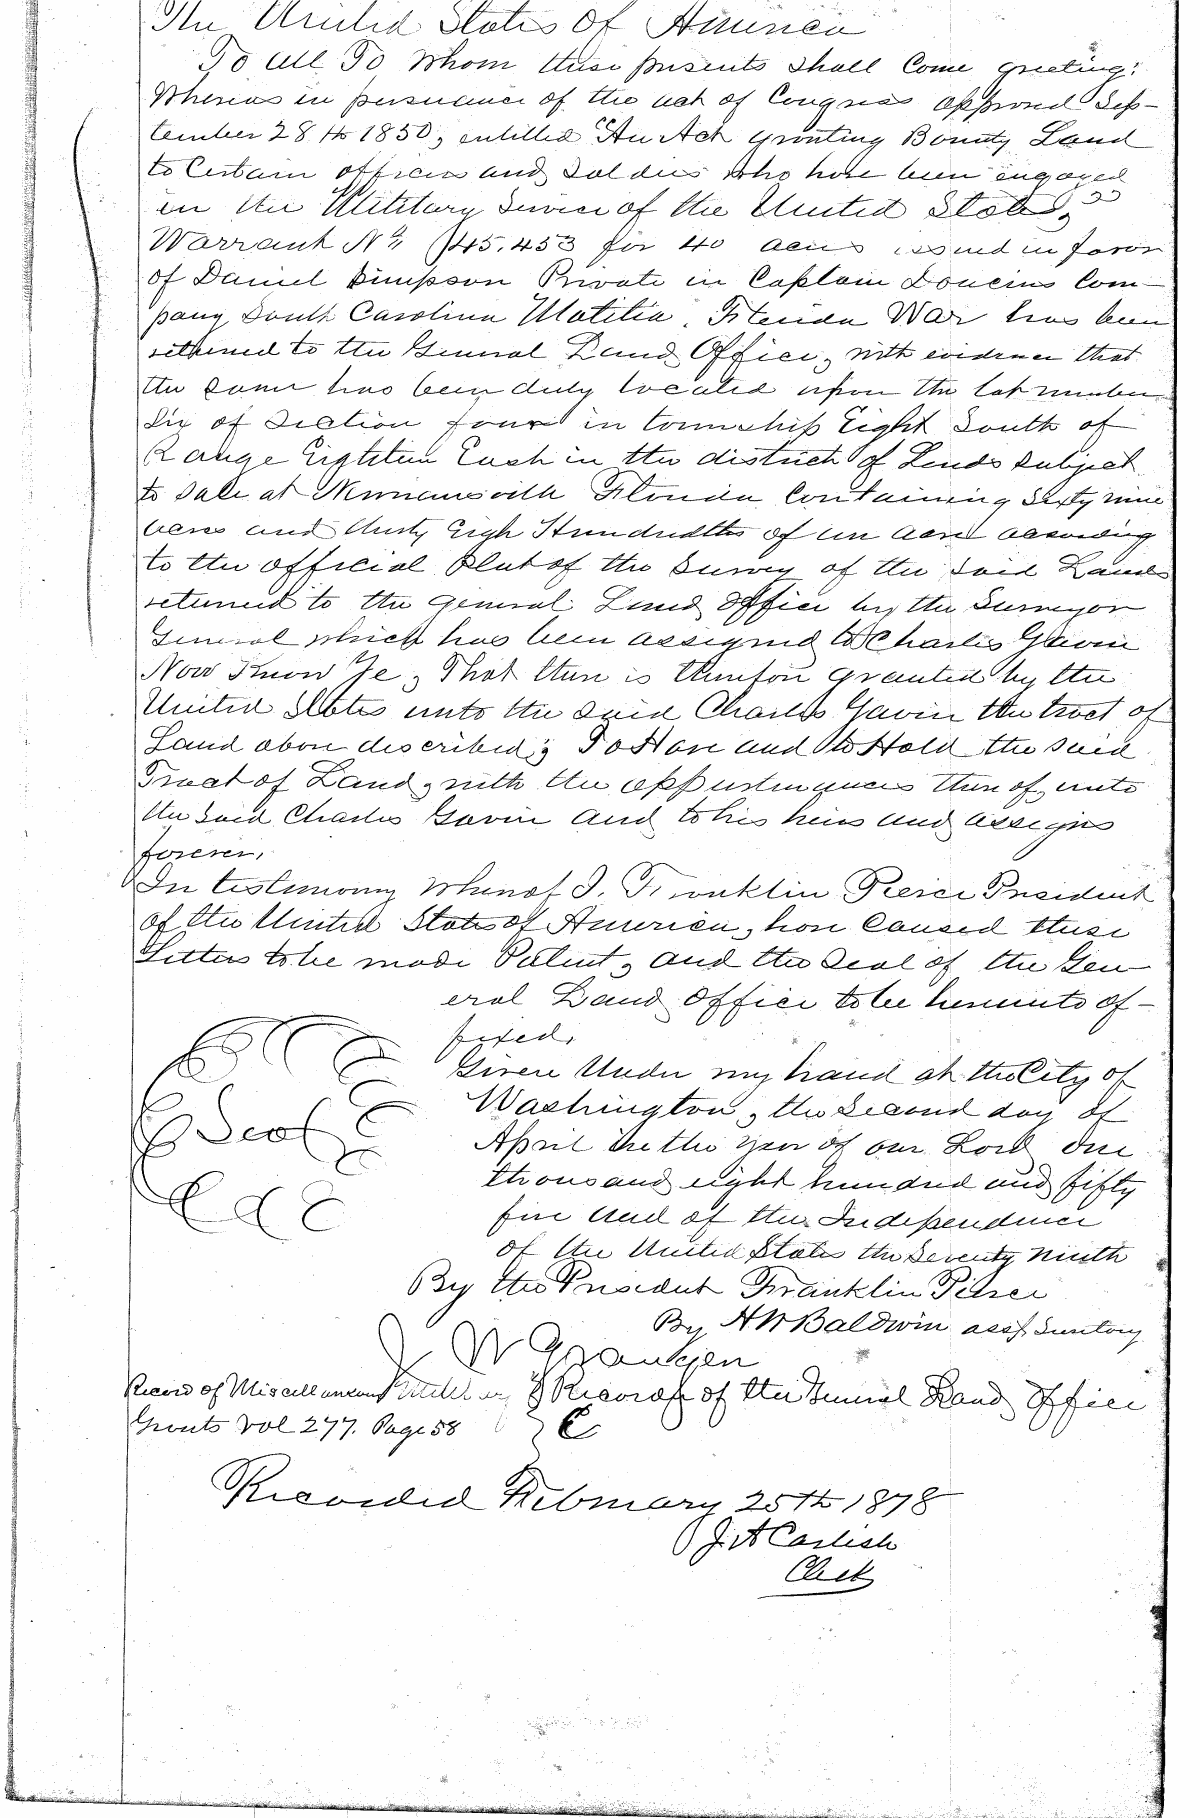 The United States Of America
To all To Whom these presents shall Come greeting:
Whereas in pursuance of the act of Congress approved Sep-
tember 28th 1850, entitled "An Act granting Bounty Land
to Certain officers and Soldiers who have been engaged
in the Military Service of the United States,"
Warrant No 45.453 for 40 acres issued in favor
of Daniel Simpson Private in Captain Com-
pany South Carolina Militia, Florida War has been
returned to the General Land Office, with evidence that
the same has been duly located upon the lot number
Six of Section four in township Eight South of
Range Eighteen East in the district of Lands subject
to Sale at Newnansville Florida Containing Sixty nine
acres and thirty Eigh Hundredths of an acre according
to the official Plat of the Survey of the Said Lands
returned to the General Land Office by the Surveyor
General which has been assigned to Charles Gavin
Now Know Ye, That there is therefore granted by the
United States unto the Said Charles Gavin the tract of
Land above described; To Have and to Hold the said
Tract of Land, with the appurtenances thereof, unto
the Said Charles Gavin and to his heirs and assigns
forever,
In testimony Whereof I, Franklin Pierce President
of the United States of America, have Caused these
Letters to be made Patent, and the Seal of the Gen
eral Land Office to be hereunto af-
fixed,
Given Under my hand at the City of
Washington, the Second day of
April in the year of our Lord one
thousand eight hundred and fifty
five and of the Independence
of the United States the Seventy Ninth
Seal
By the President Franklin Pierce
By H W Baldwin asst Secretary
Record of Miscellaneous Recorder of the General Land Office
Grants Vol 277. Page 58
Recorded February 25th 1878
J. A Carlisle
Clerk